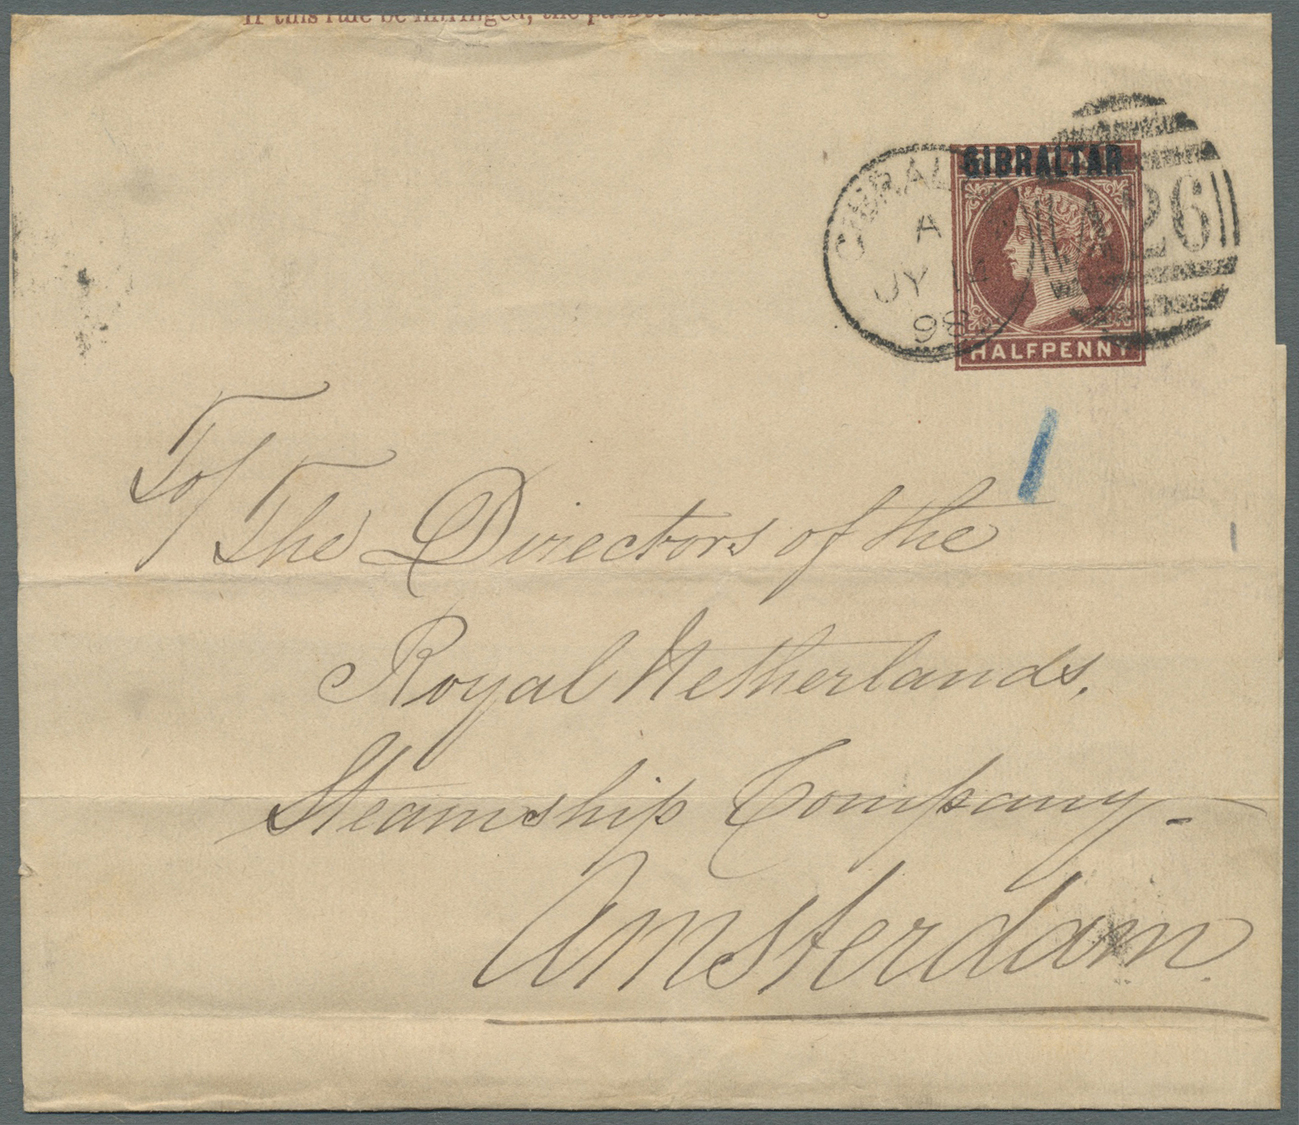 If this rule be infringed, the packet will
GIBRALTAR
GIBRAL
A
JY 14
98
A26
HALFPENNY
To/
The Directors of the
Royal Netherlands.
Steamship Company-
Amsterdam.